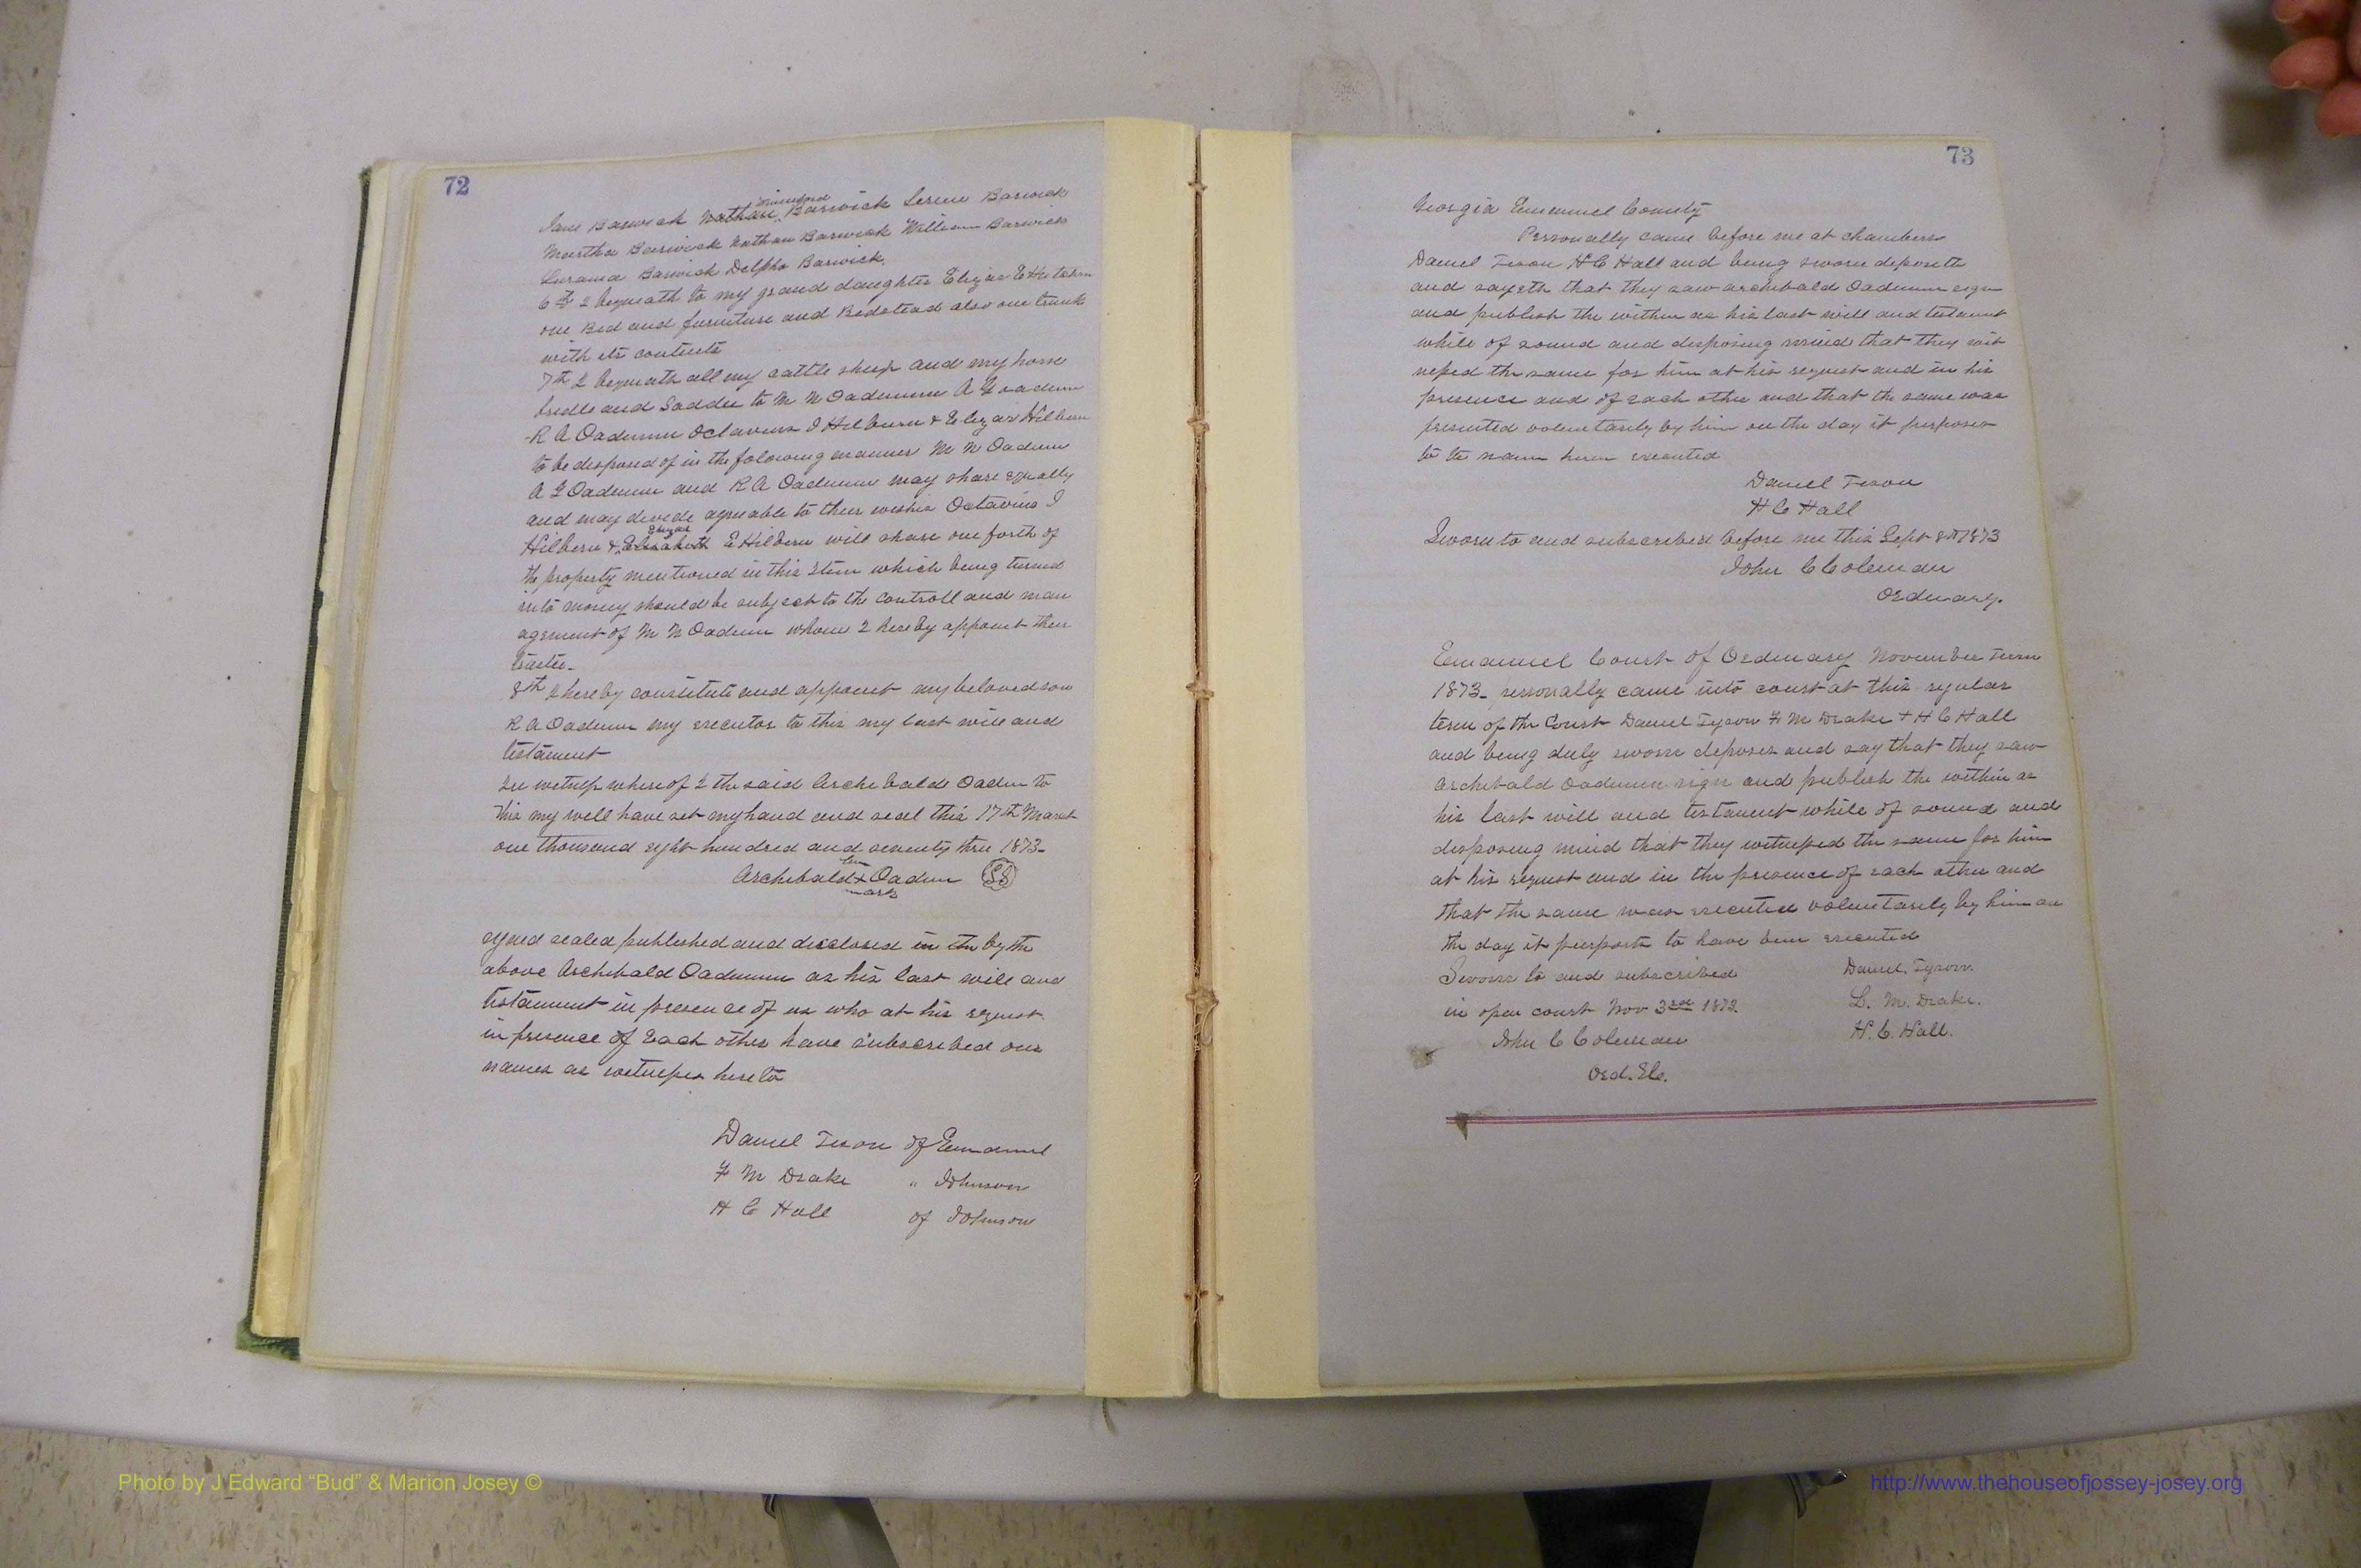 72
Jane Barwick Nathan Winneford Barwick Serene Barwick
Martha Barwick Nathan Barwick William Barwick
Lurania Barwick Delpha Barwick.
6th I bequeath to my grand daughter Elizar E
one Bed and furniture and Bedstead also one trunk
with its contents
7th I bequeath all my cattle sheep and my horse
bridle and Saddle to M N Oadumn A L Oadum
R A Oadumn Octavius I Hilburn & Elizar Hilbern
to be disposed of in the folowing manner M N Oadum
A L Oadumn and R A Oadumn may share equally
and may devide agreeable to their wishes Octavius I
Hilbern & Elisabeth Elizar E Hilbern will share one forth of
the property mentioned in this Item which being turned
into money should be subject to the controll and man
agement of M N Oadum whom I hereby appoint their
trustee-
8th I hereby constitute and appoint my beloved son
R A Oadum my executor to this my last will and
testament
In witness whereof I the said Archebald Oadum to
this my well have set my hand and seal this 17th March
one thousand eght hundred and seventy three 1873-
his
Archebald x Oadum LS
mark
signed sealed published and disclosed in by the
above Archebald Oadumn as his last will and
testament in presence of us who at his request
in presence of Each other have subscribed our
names as witnesses hereto
Daniel Tison of Emanuel
F M Drake " Johnson
H C Hall of Johnson
73
Georgia Emanuel County
Personally came before me at chambers
Daniel Tison H C Hall and being sworn deposeth
and sayeth that they saw Archibald Oadumn sign
and publish the within as his last will and testament
while of sound and disposing mind that they wit
nessed the same for him at his request and in his
presence and of each other and that the same was
presented voluntarily by him on the day it purposes
to the name been executed
Daniel Tison
H C Hall
Sworn to and subscribed before me this Sept 8th 1873
John C Coleman
Ordinary.
Emanuel Court of Ordinary November Term
1873- personally came into court at this regular
term of the Court Daniel Tyson F M Drake + H C Hall
and being duly sworn deposes and say that they saw
Archibald Oadumn sign and publish the within as
his last will and testament while of sound and
disposing mind that they witnessed the same for him
at his request and in the presence of each other and
that the same was executed voluntarily by him on
the day it purports to have been executed
Sworn to and subscribed Daniel Tyson.
in open court Nov 3rd 1873. L. M. Drake.
John C Coleman H. C. Hall.
Ord. E.C.
Photo by J Edward “Bud” & Marion Josey ©
http://www.thehouseofjossey-josey.org